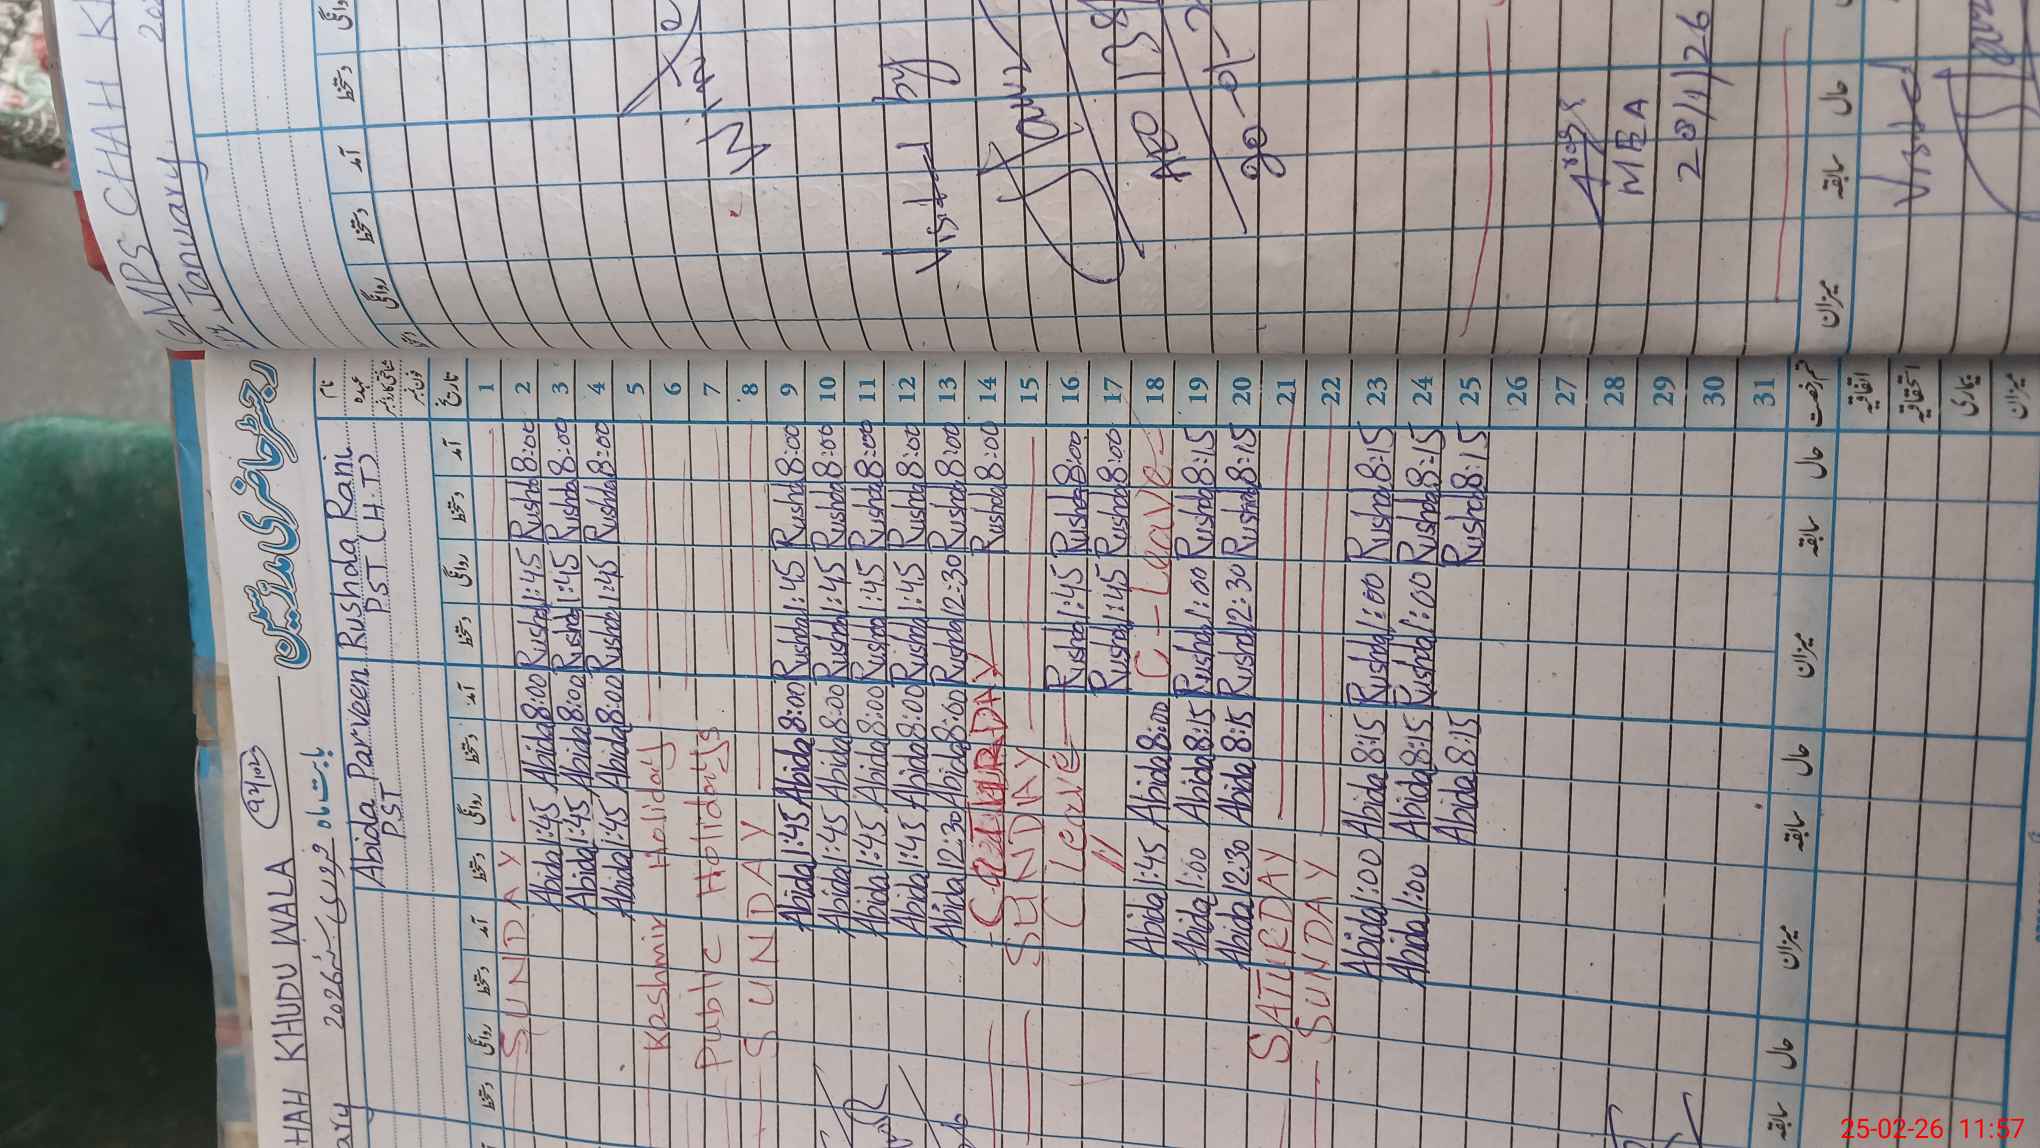 GMPS CHAH KH
January
Visited by
AEO
28/1/26
MEA
Visited
رجسٹر حاضری مدرسین
HAH KHUDU WALA
بابت ماہ فروری سنہ 2026
نام
Rushda Rani
Abida Parveen
عہدہ
PST (H.T)
PST
تاریخ
آمد دستخط روانگی دستخط آمد دستخط روانگی دستخط آمد دستخط روانگی دستخط
1 SUNDAY
2 8:00 Rushda 1:45 Rushda 8:00 Abida 1:45 Abida
3 8:00 Rushda 1:45 Rushda 8:00 Abida 1:45 Abida
4 8:00 Rushda 1:45 Rushda 8:00 Abida 1:45 Abida
5 Kashmir Holiday
6 Public Holidays
7
8 SUNDAY
9 8:00 Rushda 1:45 Rushda 8:00 Abida 1:45 Abida
10 8:00 Rushda 1:45 Rushda 8:00 Abida 1:45 Abida
11 8:00 Rushda 1:45 Rushda 8:00 Abida 1:45 Abida
12 8:00 Rushda 1:45 Rushda 8:00 Abida 1:45 Abida
13 8:00 Rushda 12:30 Rushda 8:00 Abida 12:30 Abida
14 8:00 Rushda SATURDAY
15 SUNDAY
16 8:00 Rushda 1:45 Rushda C leave
17 8:00 Rushda 1:45 Rushda "
18 C-Leave 8:00 Abida 1:45 Abida
19 8:15 Rushda 1:00 Rushda 8:15 Abida 1:00 Abida
20 8:15 Rushda 12:30 Rushda 8:15 Abida 12:30 Abida
21 SATURDAY
22 SUNDAY
23 8:15 Rushda 1:00 Rushda 8:15 Abida 1:00 Abida
24 8:15 Rushda 1:00 Rushda 8:15 Abida 1:00 Abida
25 8:15 Rushda 8:15 Abida
26
27
28
29
30
31
قسم رخصت حال سابقہ میزان حال سابقہ میزان حال سابقہ
اتفاقیہ
استحقاقیہ
بیماری
میزان
25-02-26 11:57